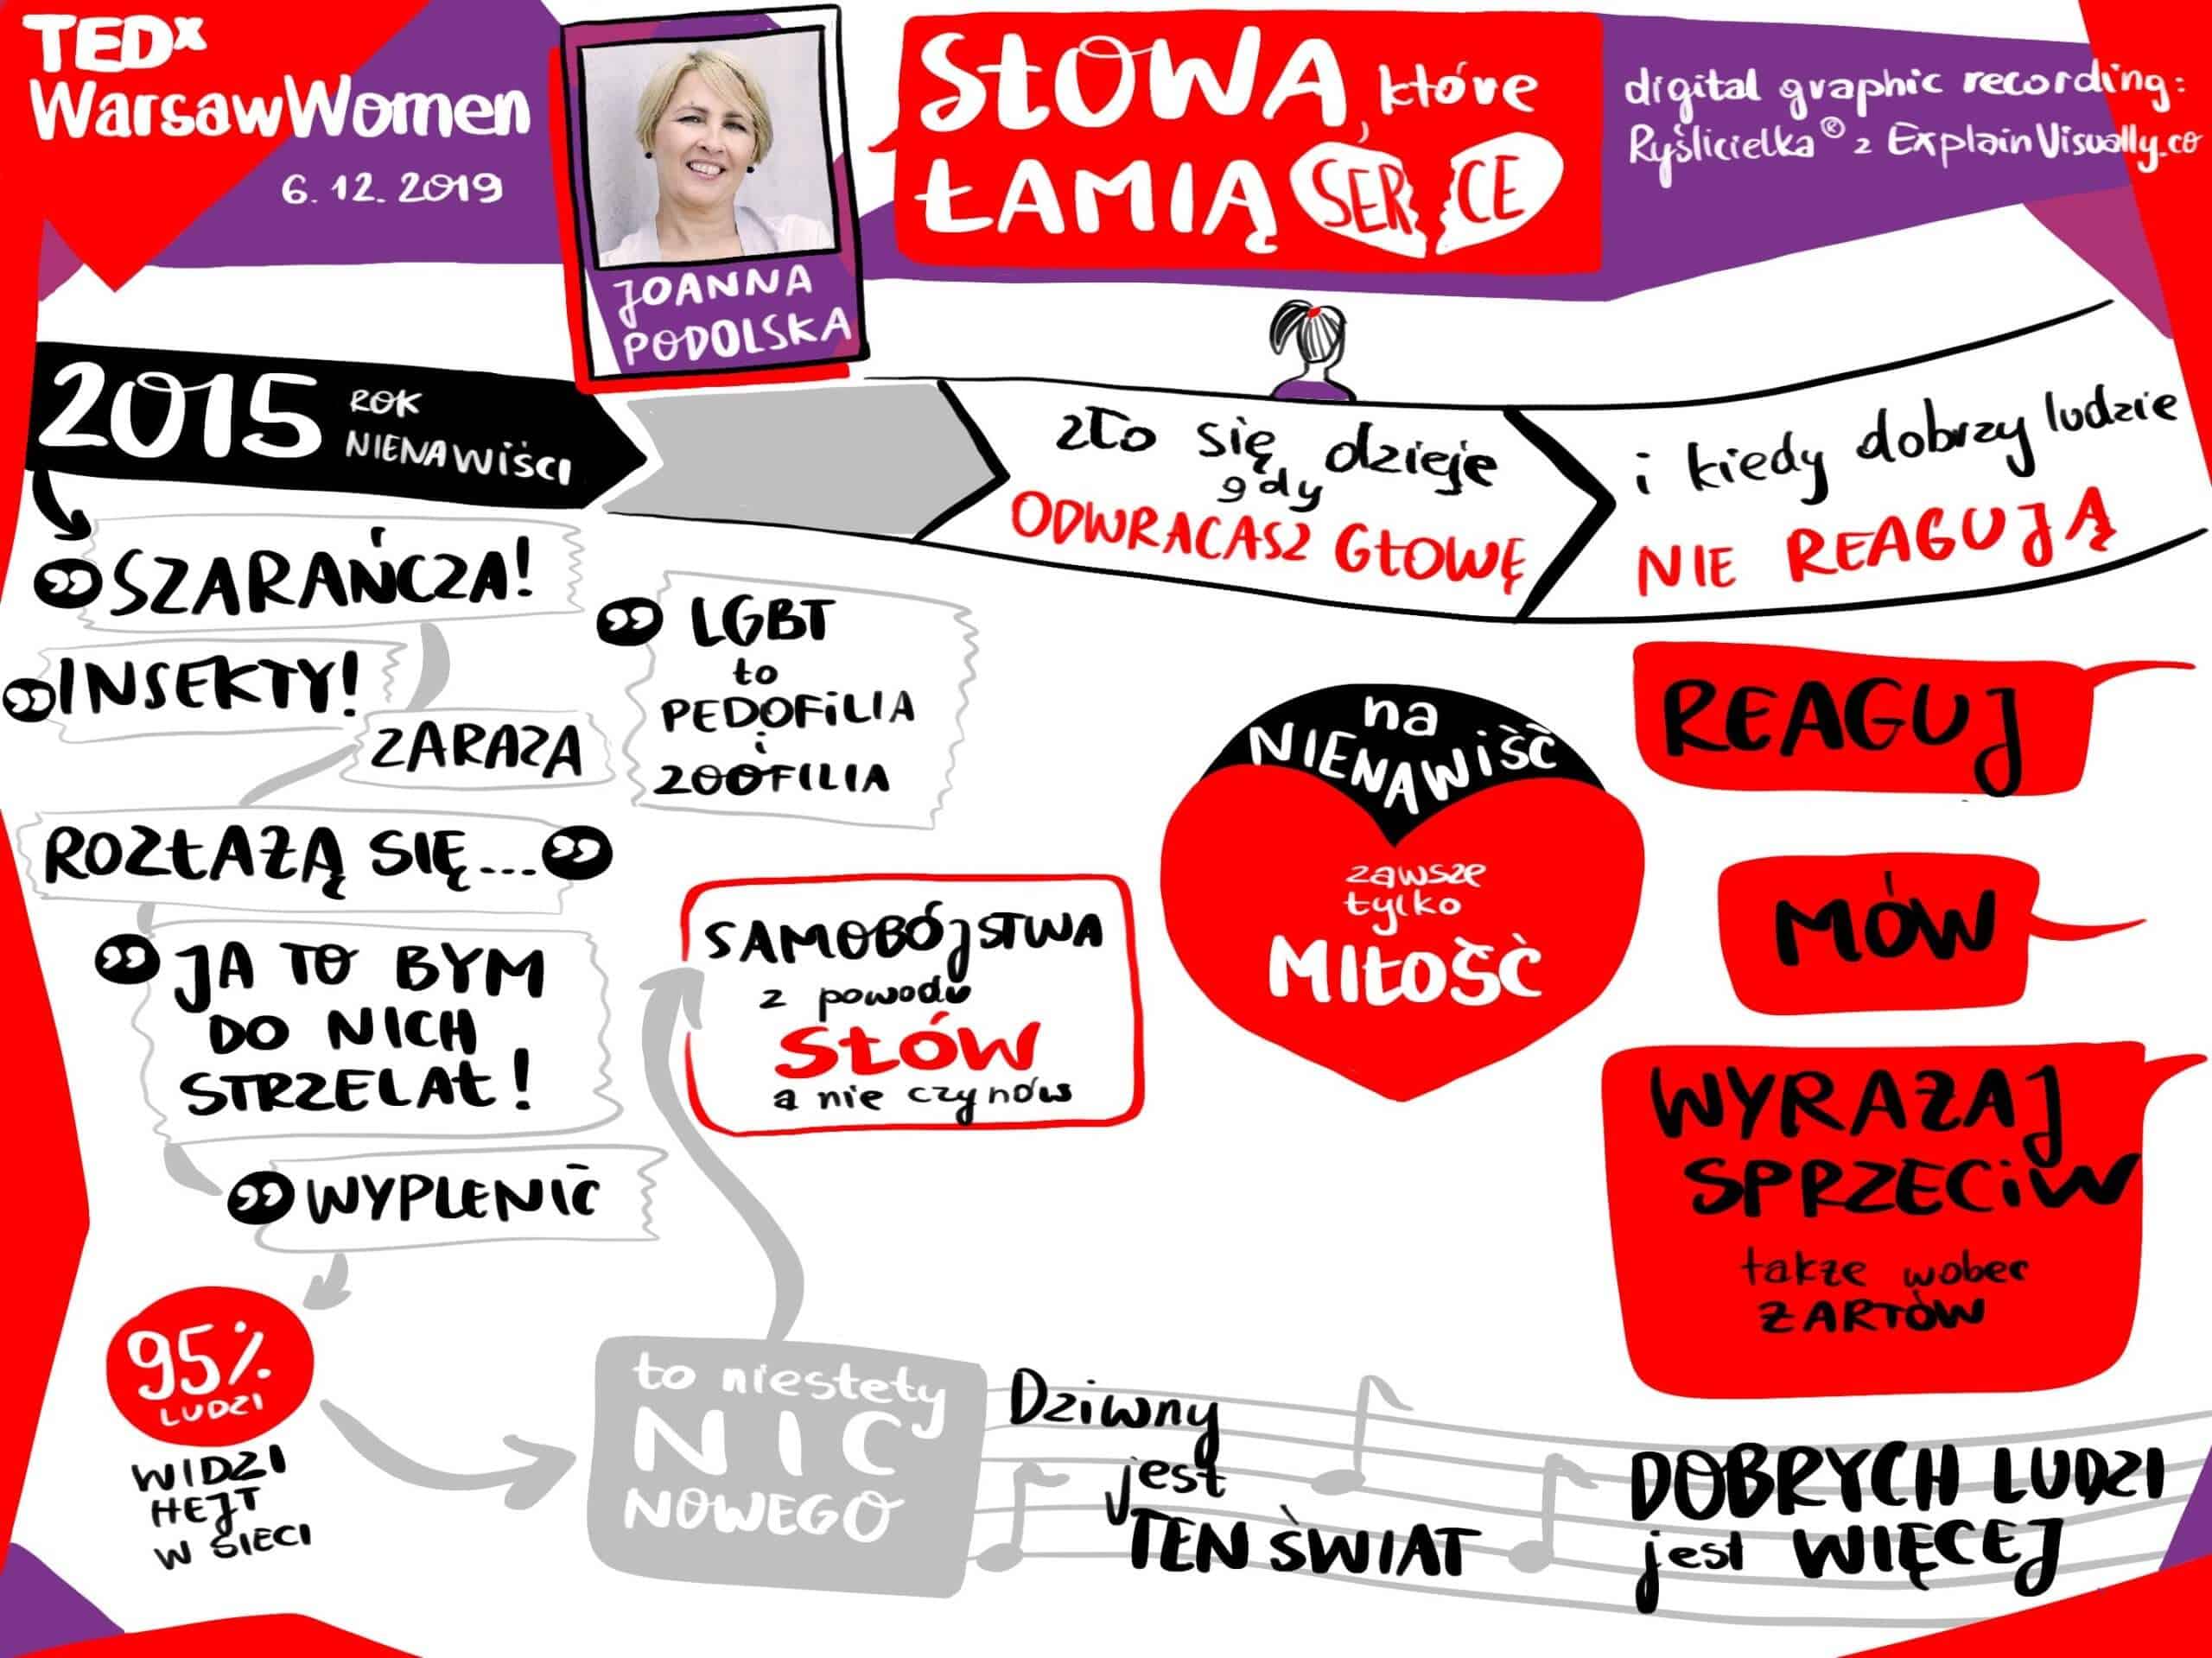 TEDx
WarsawWomen
6. 12. 2019
JOANNA
PODOLSKA
SŁOWA, które
ŁAMIĄ SERCE
digital graphic recording:
Ryślicielka® z ExplainVisually.co
2015 ROK
NIENAWIŚCI
zło się dzieje
gdy
ODWRACASZ GŁOWĘ
i kiedy dobrzy ludzie
NIE REAGUJĄ
" SZARAŃCZA!
" INSEKTY!
ZARAZA
ROZŁAŻĄ SIĘ... "
" JA TO BYM
DO NICH
STRZELAŁ!
" WYPLENIĆ
" LGBT
to
PEDOFILIA
i
ZOOFILIA
SAMOBÓJSTWA
z powodu
SŁÓW
a nie czynów
na
NIENAWIŚĆ
zawsze
tylko
MIŁOŚĆ
REAGUJ
MÓW
WYRAŻAJ
SPRZECIW
także wobec
ŻARTÓW
95%
LUDZI
WIDZI
HEJT
W SIECI
to niestety
NIC
NOWEGO
Dziwny
jest
TEN ŚWIAT
DOBRYCH LUDZI
jest WIĘCEJ